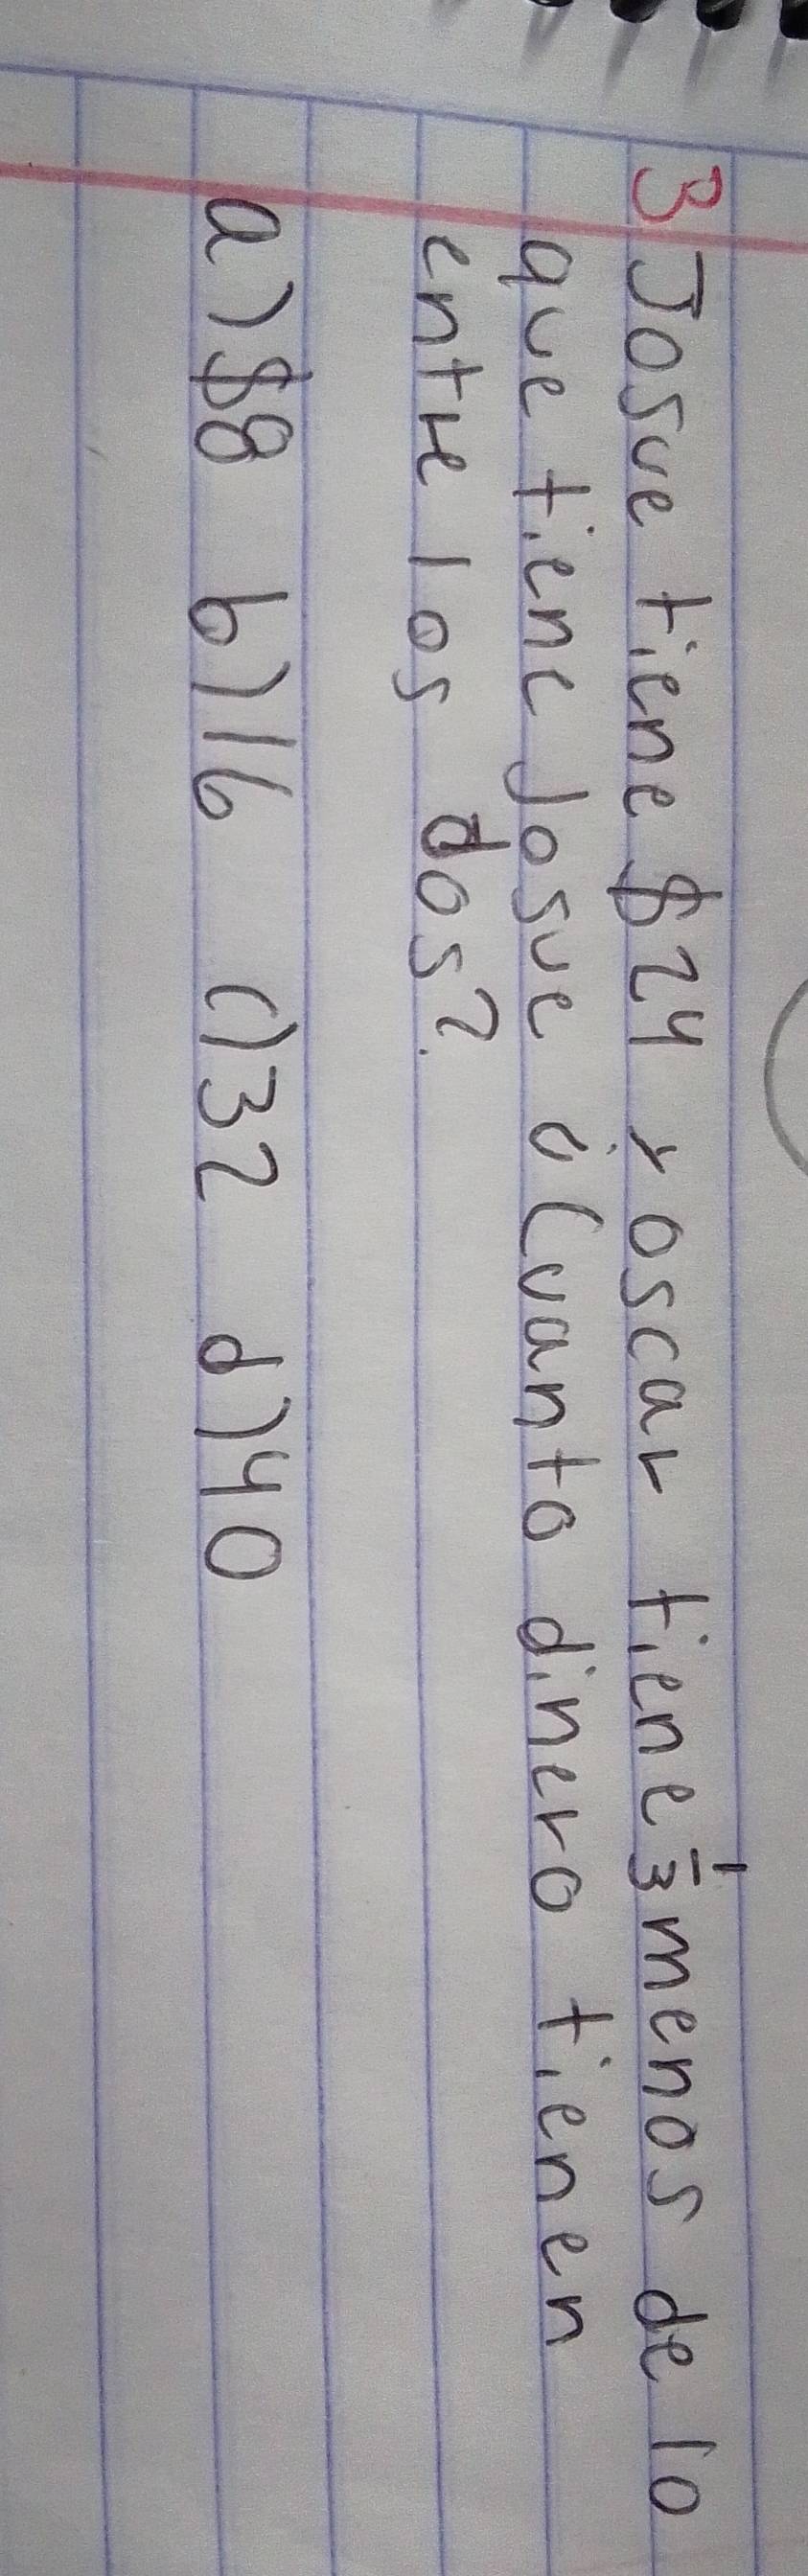 3 Josue tiene $24 y oscar tiene 1/3 menos de lo
que tiene Josue ¿Cuanto dinero tienen
entre los dos?
a) $8 b) 16 c) 32 d) 40